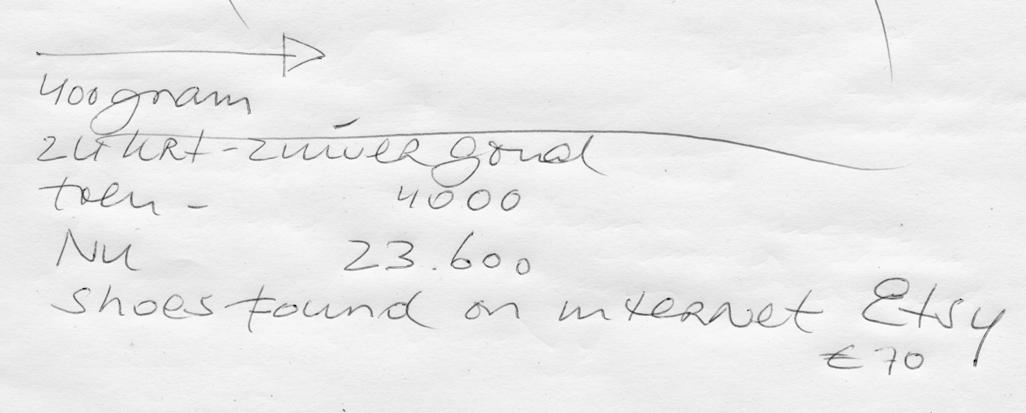 400 gram
24 KRT - zuiver goud
toen - 4000
Nu 23.600
shoes found on internet Etsy
€ 70